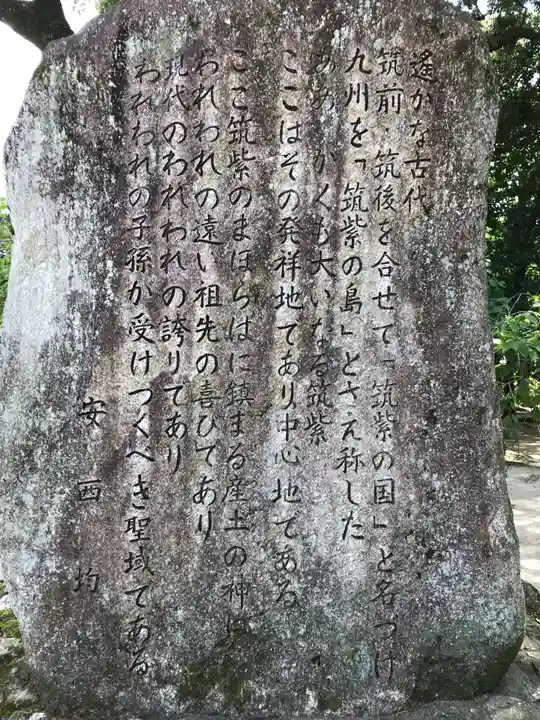 遙かな古代
筑前・筑後を合せて「筑紫の国」と名づけ
九州を「筑紫の島」とさえ称した
ああ かくも大いなる筑紫
ここはその発祥地であり中心地である
ここ筑紫のまほらばに鎮まる産土の神は
われわれの遠い祖先の喜びであり
現代のわれわれの誇りであり
われわれの子孫が受けつぐべき聖域である
安西均